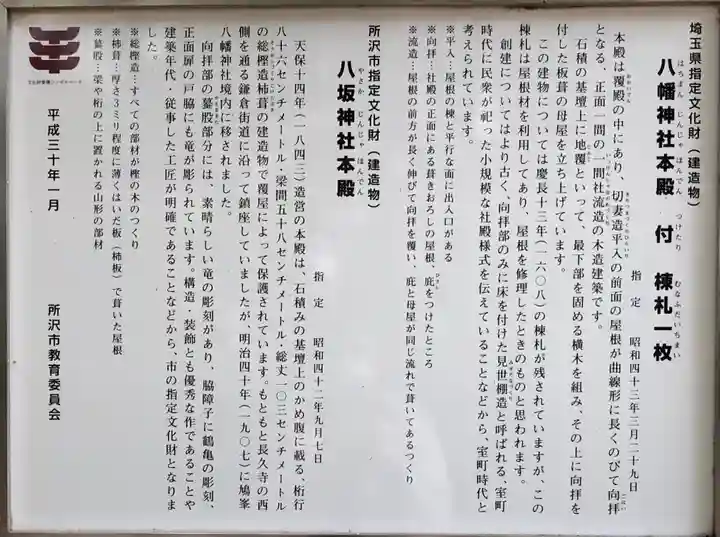 埼玉県指定文化財(建造物)
八幡神社本殿 付 棟札一枚
はちまん じんじゃ ほんでん つけたり むなふだいちまい
指定 昭和四十三年三月二十九日
本殿は覆殿の中にあり、切妻造平入の前面の屋根が曲線形に長くのびて向拝
となる、正面一間の一間社流造の木造建築です。
石積の基壇上に地覆といって、最下部を固める横木を組み、その上に向拝を
付した板葺の母屋を立ち上げています。
この建物については慶長十三年(一六〇八)の棟札が残されていますが、この
棟札は屋根材を利用してあり、屋根を修理したときのものと思われます。
創建についてはより古く、向拝部のみに床を付けた見世棚造と呼ばれる、室町
時代に民衆が祀った小規模な社殿様式を伝えていることなどから、室町時代と
考えられています。
※平入…屋根の棟と平行な面に出入口がある
※向拝…社殿の正面にある葺きおろしの屋根、庇をつけたところ
※流造…屋根の前方が長く伸びて向拝を覆い、庇と母屋が同じ流れで葺いてあるつくり
所沢市指定文化財(建造物)
八坂神社本殿
やさか じんじゃ ほんでん
指定 昭和四十二年九月七日
天保十四年(一八四三)造営の本殿は、石積みの基壇上のかめ腹に載る、桁行
八十六センチメートル・梁間五十八センチメートル・総丈一〇三センチメートル
の総欅造杮葺の建造物で覆屋によって保護されています。もともと長久寺の西
側を通る鎌倉街道に沿って鎮座していましたが、明治四十年(一九〇七)に鳩峯
八幡神社境内に移されました。
向拝部の蟇股部分には、素晴らしい竜の彫刻があり、脇障子に鶴亀の彫刻、
正面扉の戸脇にも竜が彫られています。構造・装飾とも優秀な作であることや
建築年代・従事した工匠が明確であることなどから、市の指定文化財となりま
した。
※総欅造…すべての部材が欅の木のつくり
※杮葺…厚さ3ミリ程度に薄くはいだ板(杮板)で葺いた屋根
※蟇股…梁や桁の上に置かれる山形の部材
平成三十年一月 所沢市教育委員会